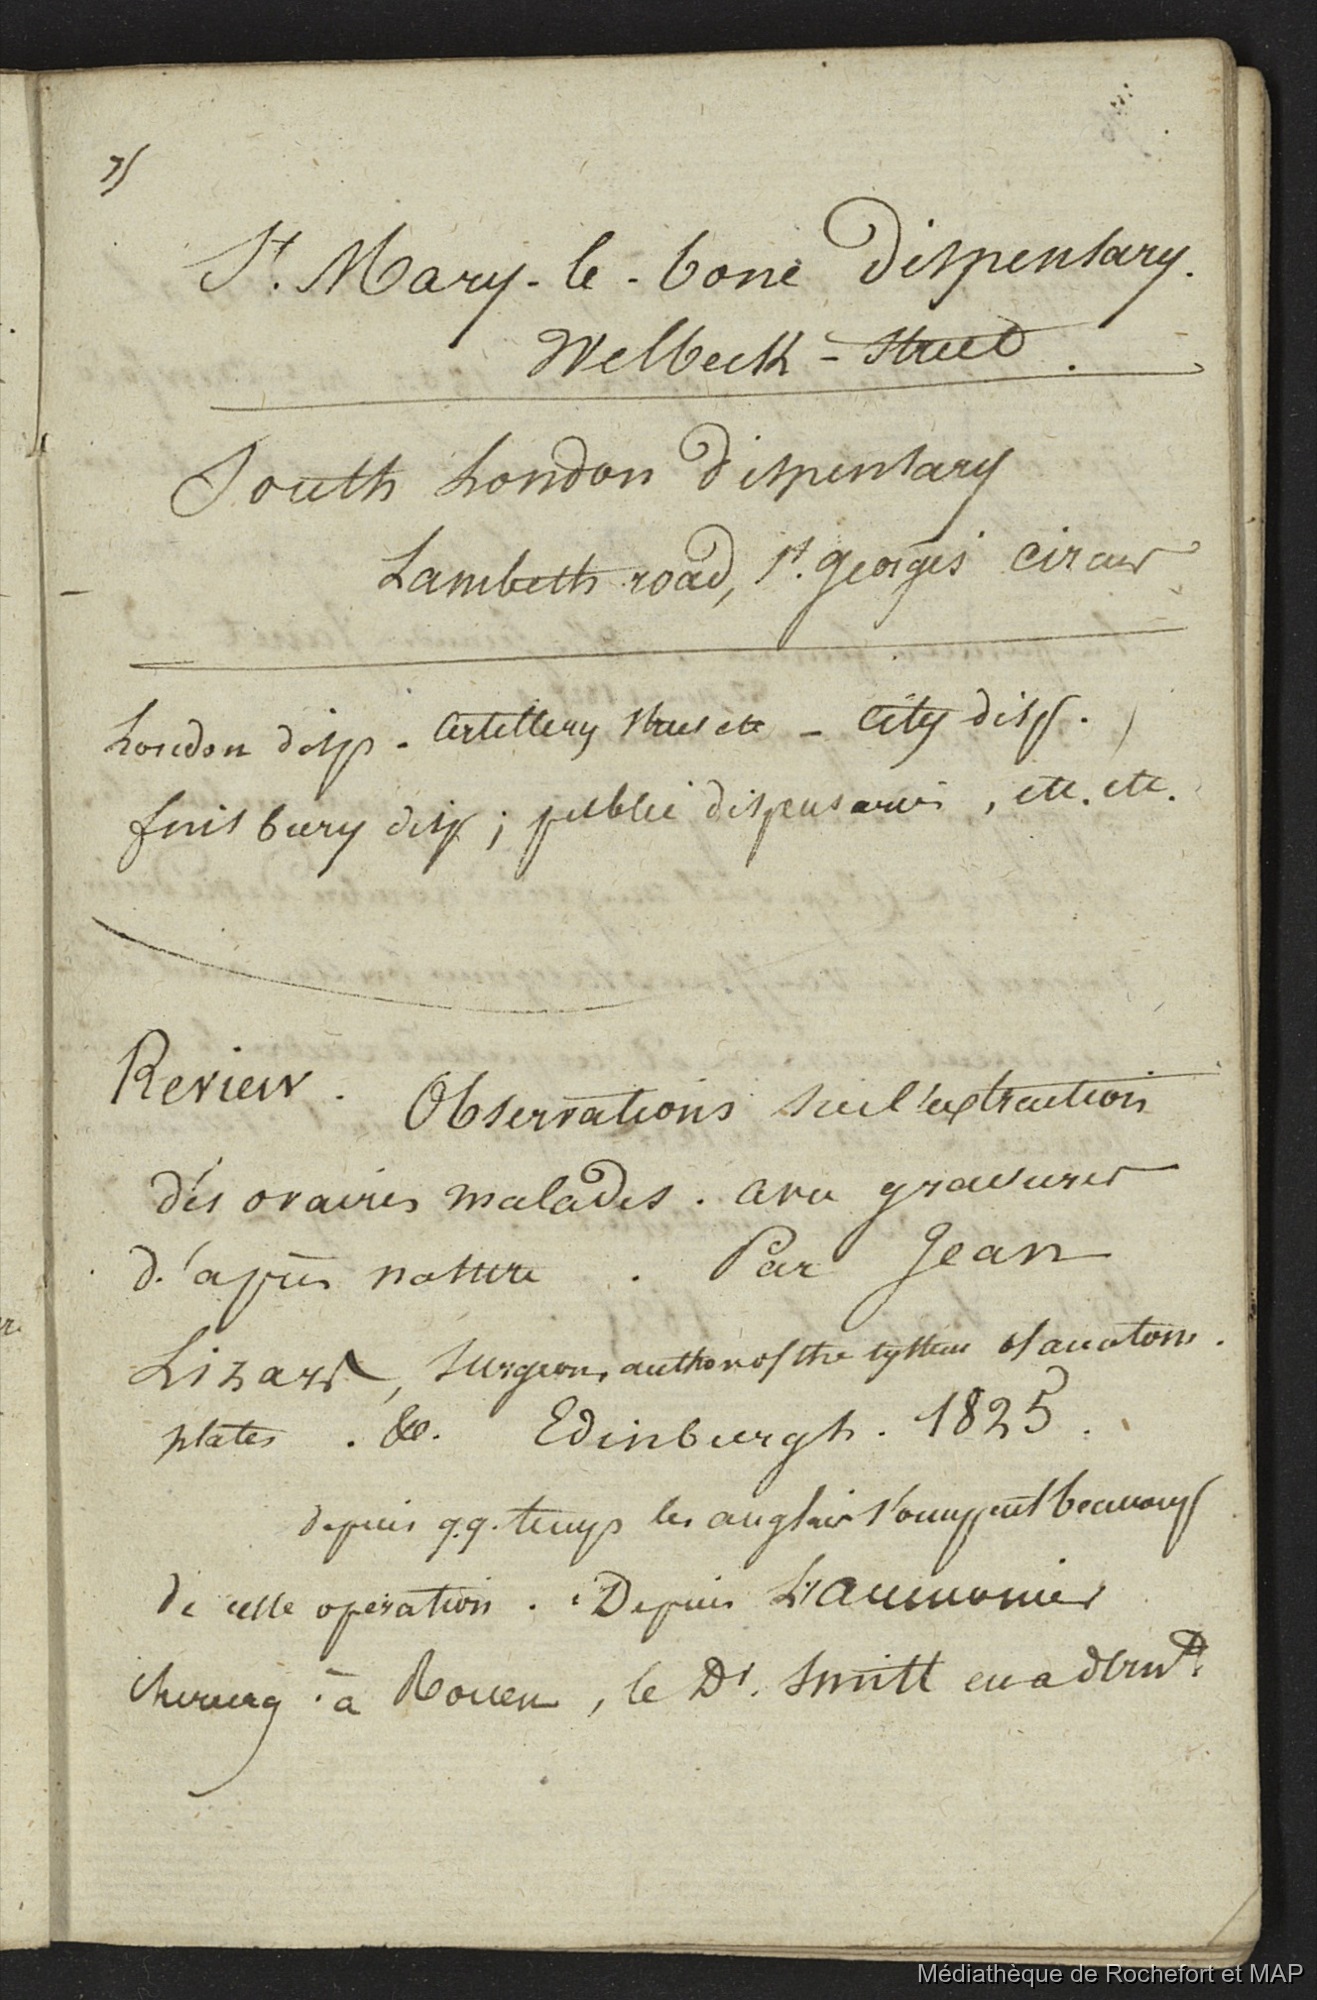 75
St. Mary-le-bone Dispensary.
Welbeck-Street.
South London Dispensary
Lambeth road, St. Georges Circus
London disp. Artillery Street etc - City disp.
finsbury disp; public dispensaries, etc. etc.
Review. Observations sur l'extraction
des ovaires malades. avec gravures
d'après nature. Par Jean
Lizars, Surgeon, author of the system of anatom.
plates. &c. Edinburgh. 1825.
depuis q.q. temps les anglais s'occupent beaucoup
de cette operation. Depuis L'aumonier
chirurg. à Rouen, le Dr. Smitt en a
Médiathèque de Rochefort et MAP